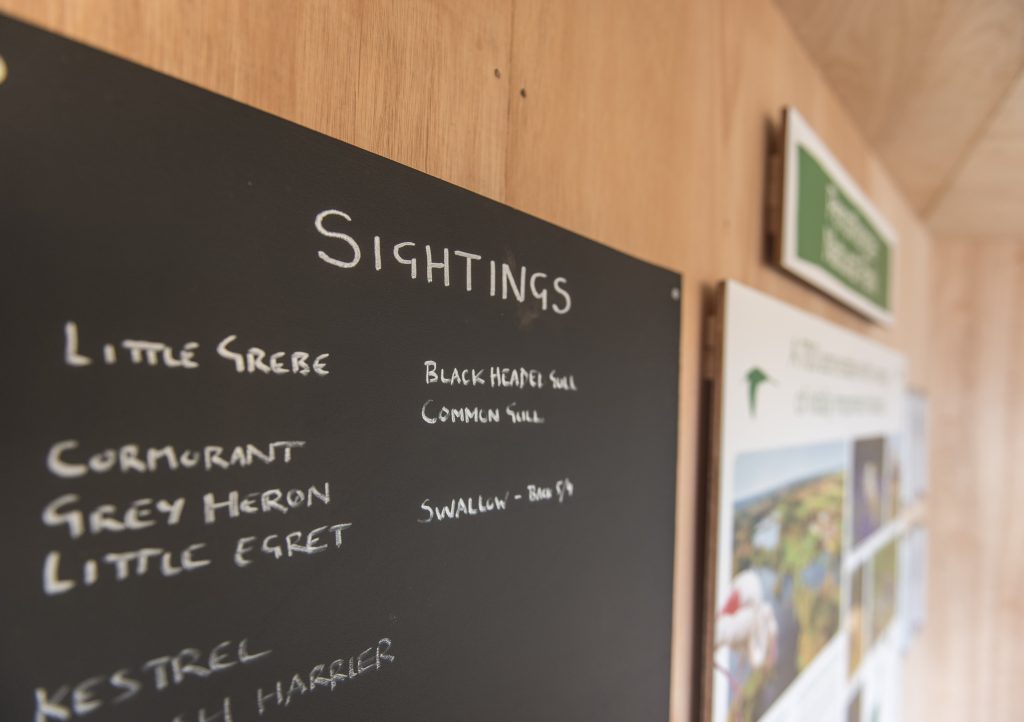 SIGHTINGS
LITTLE GREBE
CORMORANT
GREY HERON
LITTLE EGRET
KESTREL
HARRIER
BLACK HEADED GULL
COMMON GULL
SWALLOW - BACK 5/4